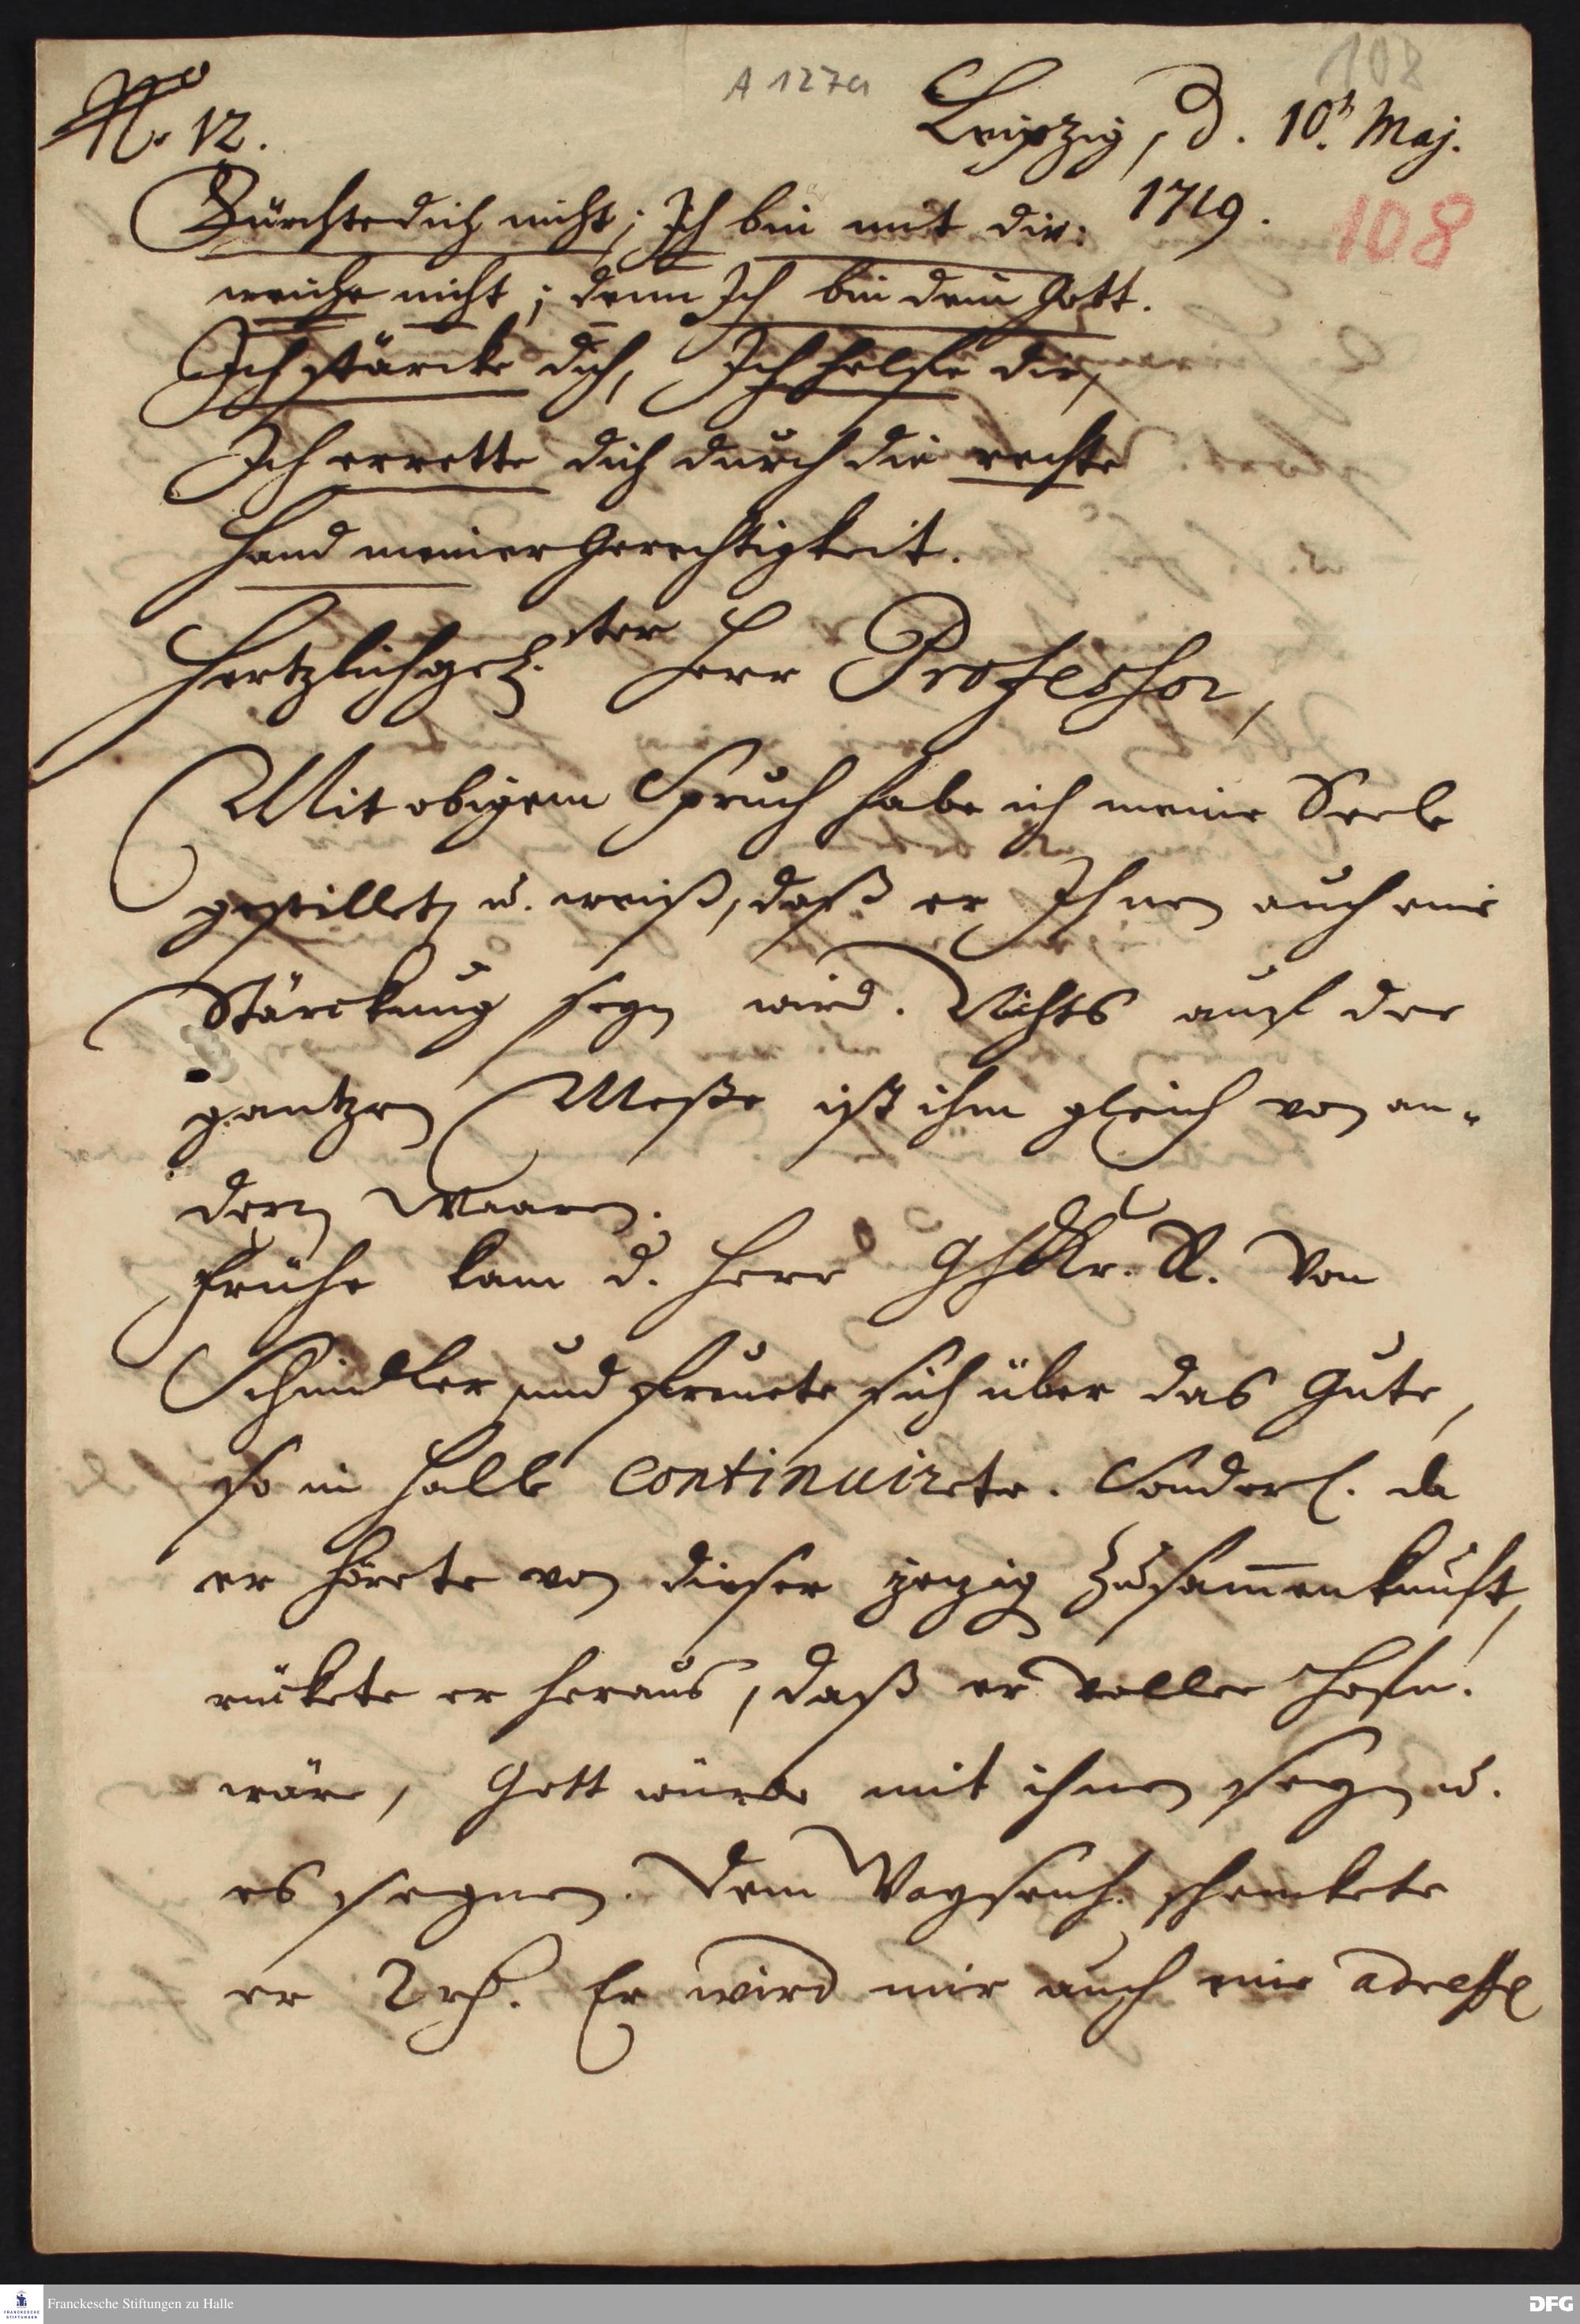 108
A 127a
No. 12.
Leipzig, d. 10. Maj.
1719.
108
Fürchte dich nicht; Ich bin mit dir:
weiche nicht; denn Ich bin dein Gott.
Ich stärcke dich, Ich helfe dir,
Ich errette dich durch die rechte
Hand meiner Gerechtigkeit.
Hertzlichgel. ter Herr Professor,
Mit obigem Spruch habe ich meine Seele
gestillet, u. weiß, daß er Ihnen auch eine
Stärckung seyn wird. Nichts auf der
gantzen Meße ist ihm gleich von an-
dern Waaren.
Frühe kam d. Herr R. von
Schindler und freuete sich über das Gute,
so in Halle continuirete. Sonderl. da
er hörete von dieser jezig Zusam̄enkunft,
rückete er heraus, daß er voller Hofn.
wäre, Gott würde mit ihnen seyn u.
es segnen. Dem Waysenh. schenckete
er 2 rh. Er wird mir auch eine adresse
Franckesche Stiftungen zu Halle
FRANCKESCHE STIFTUNGEN
DFG